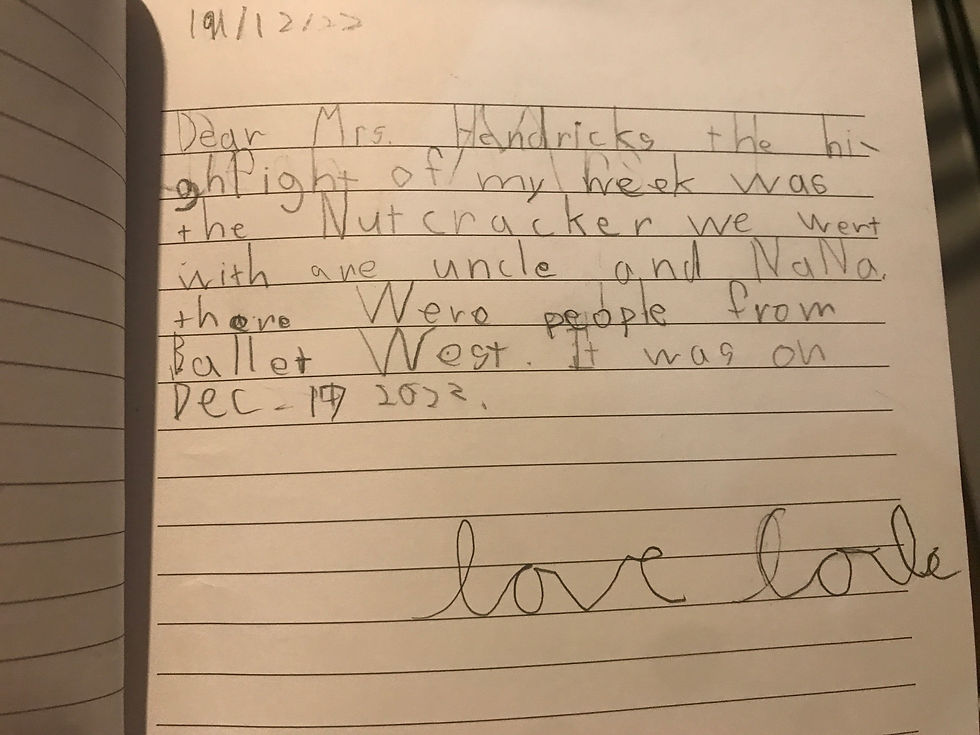 19/12/22
Dear Mrs. Hendricks the hi-
ghlight of my week was
the Nutcracker we went
with are uncle and NaNa.
there Were people from
Ballet West. It was on
Dec - 17 2022.
love